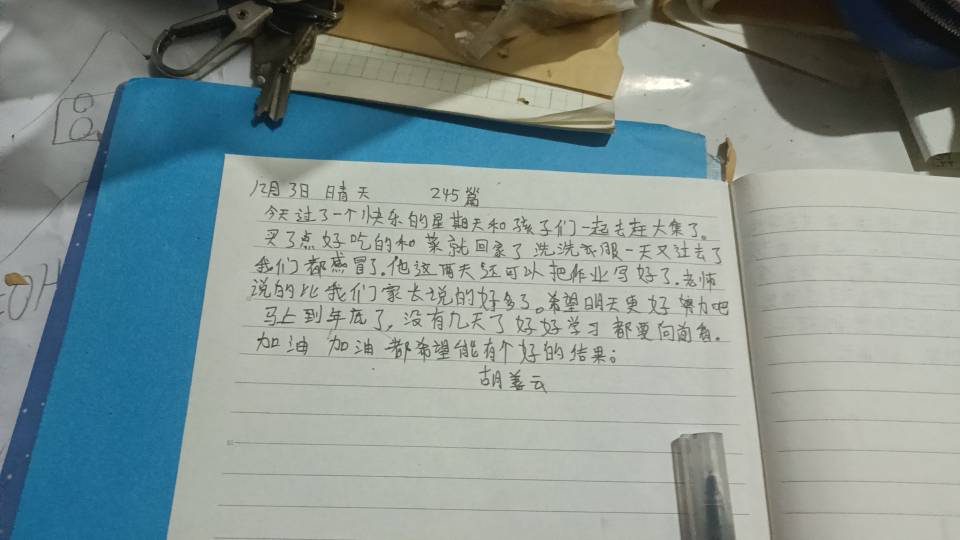 12月3日 晴天 245篇
今天过了一个快乐的星期天和孩子们一起去赶大集了。
买了点好吃的和菜就回家了洗洗衣服一天又过去了
我们都感冒了。他这两天还可以把作业写好了。老师
说的比我们家长说的好多了。希望明天更好 努力吧
马上到年底了，没有几天了好好学习都要向前看。
加油 加油 都希望能有个好的结果；
胡善云